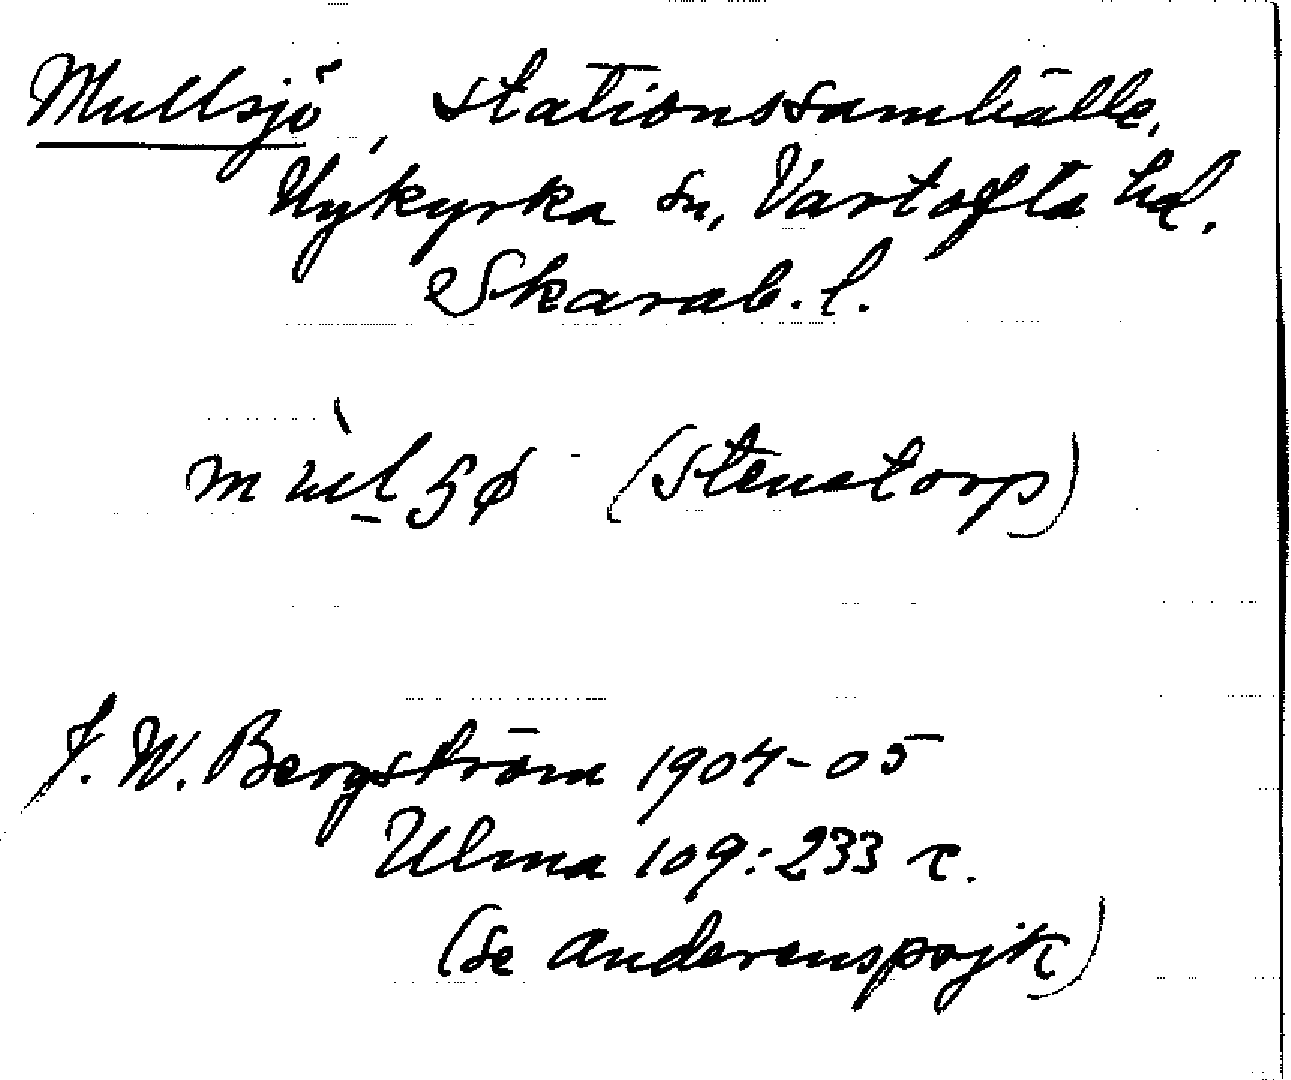 Mullsjö, stationssamhälle,
Nykyrka sn, Vartofta hd.
Skarab. l.
(Stenstorp)
J. W. Bergström 1904-05
Ulma 109:233 r.
(se anderenspojk)